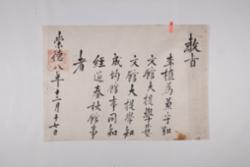 敎旨
李植爲兼守弘
文館大提學藝
文館大提學知
成均館事同知
經筵春秋館事
者
崇德八年十二月十七日